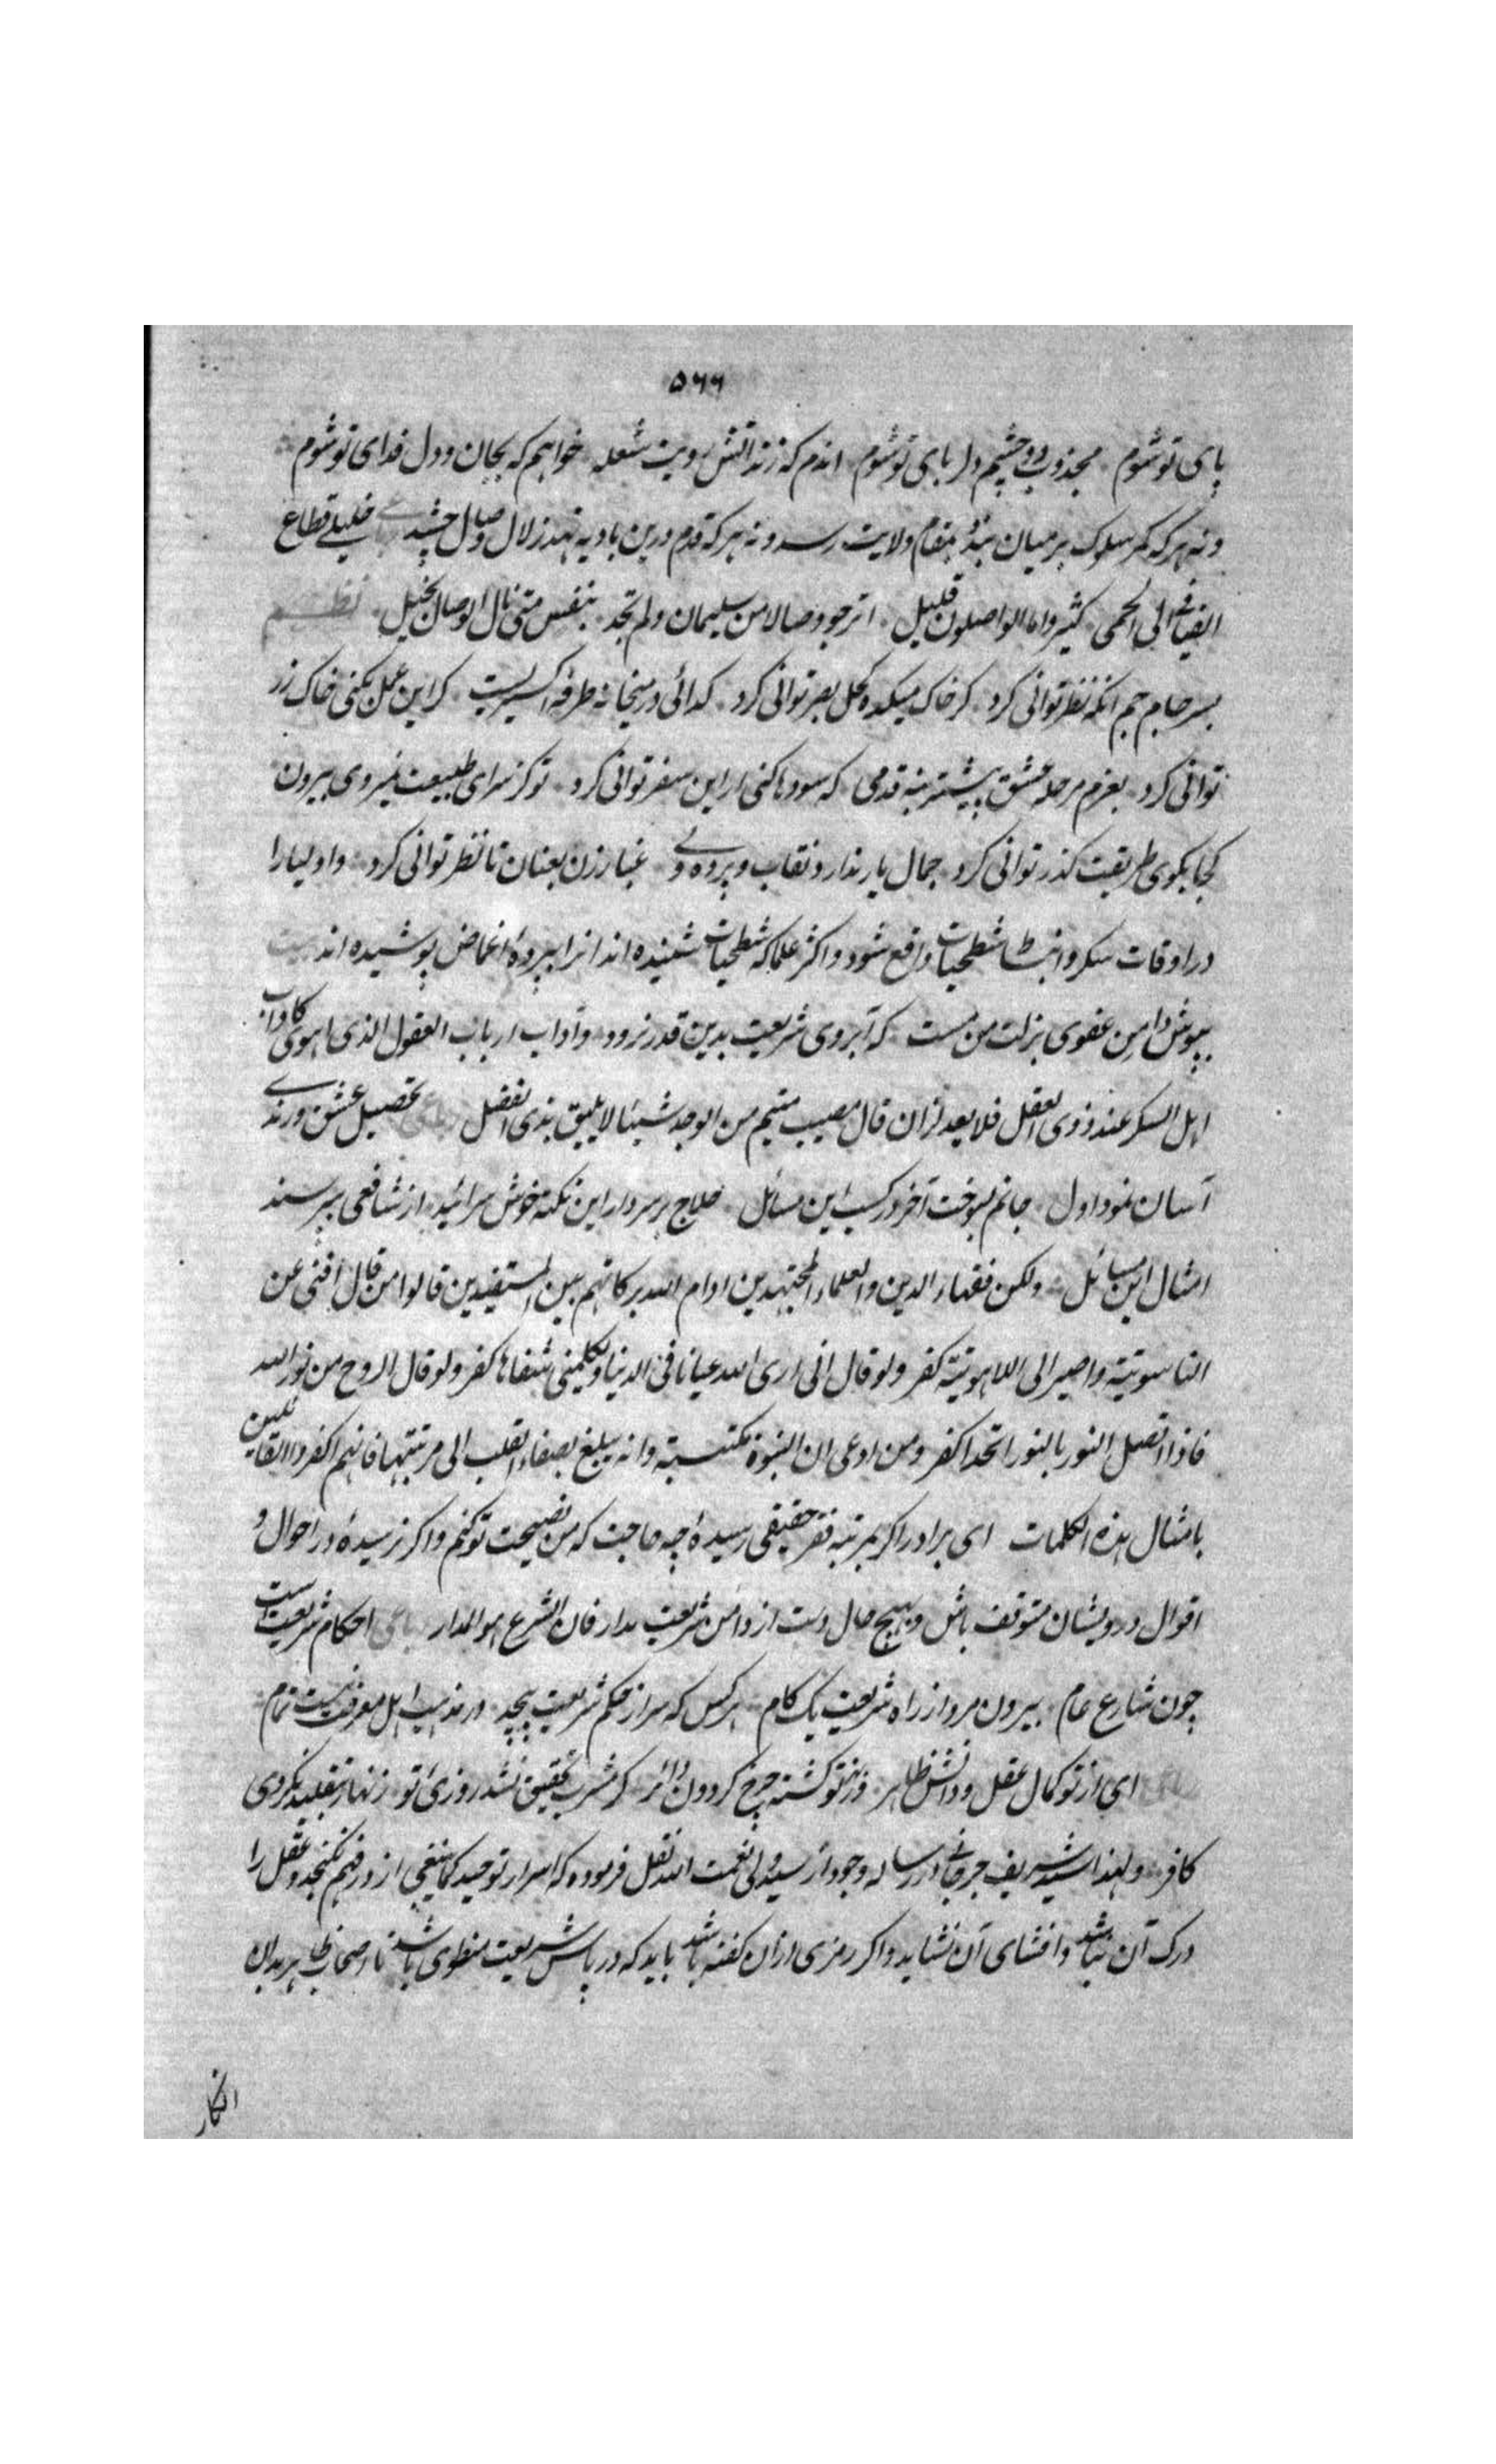 ۵۶۶
پای تو شوم مجذوب دو چشم دل ربای تو شوم اندم که زند اتش رویت شعله خواهم که بجان و دل فدای تو شوم
و نه هر که کمر سلوک بر میان بندد بمقام ولایت رسد و نه هر که قدم درین بادیه نهد زلال وصال چشد خلیلی قطاع
الفیافی الی الحمی کثیر و اما الواصلون قلیل اترجو وصالا من سلیمان ولم تجد بنفس متی نال الوصال بخیل نظم
بسر جام جم انکه نظر توانی کرد که خاک میکده کحل بصر توانی کرد کدائی در میخانه طرفه اکسیریست کر این عمل بکنی خاک زر
توانی کرد بعزم مرحله عشق پیشتر بنه قدمی که سودها کنی ار این سفر توانی کرد تو کز سرای طبیعت نمیروی بیرون
کجا بکوی طریقت کذر توانی کرد جمال یار ندارد نقاب و پرده ولی غبار ره بنشان تا نظر توانی کرد و اولیا را
در اوقات سکر و انبساط شطحیات واقع شود و اکثر علما که شطحیات شنیده اند انرا بپرده اغماض پوشیده اند بیت
بپوش دامن عفوی بزلت من مست که آبروی شریعت بدین قدر نرود و آداب ارباب العقول الذی الهوی کآداب
اهل السکر عند ذوی العقل فلا یعد لن ان قال صب متیم من الوجد شیئا لا یلیق بذی الفضل تحصیل عشق و رندی
آسان نمود اول جانم بسوخت آخر در کسب این مسائل حلاج بر سر دار این نکته خوش سراید از شافعی نپرسند
امثال این مسائل ولکن فقهاء الدین و العلماء المجتهدین ادام الله برکاتهم بین المستفیدین قالوا من قال افنی عن
الناسوتیة و اصیر الی اللاهوتیة کفر و لو قال انی اری الله عیانا فی الدنیا و یکلمنی شفاها کفر و لو قال الروح من نور الله
فاذا اتصل النور بالنور اتحدا کفر و من ادعی ان النبوة مکتسبة و انه یبلغ بصفاء القلب الی مرتبتها فانهم اکفر القایلین
بامثال هذه الکلمات ای برادر اکر بمرتبه فقر حقیقی رسیدۀ چه حاجت که من نصیحت تو کنم و اکر نرسیدۀ در احوال و
اقوال درویشان متوقف باش و بهیچ حال دست از دامن شریعت مدار فان الشرع هو المدار احکام شریعت است
چون شارع عام بیرون مرو از راه شریعت یک کام هر کس که سر از حکم شریعت پیچد در مذهب اهل معرفت نیست تمام
ای از تو کمال عقل و دانش ظاهر وز بهر تو کشته چرخ کردون دائر کر مشرب تحقیق نشد روزی تو زنهار بتقلید نکردی
کافر و لهذا سید شریف جرجانی در رساله وجود از سید ولی نعمت الله نقل فرموده که اسرار توحید کما ینبغی از در فهم نکنجد و عقل را
درک آن نباشد و افشای آن نشاید و اکر رمزی ازان کفته باشد باید که در پاس شریعت منطوی باشد تا اصحاب ظاهر بدان
انکار